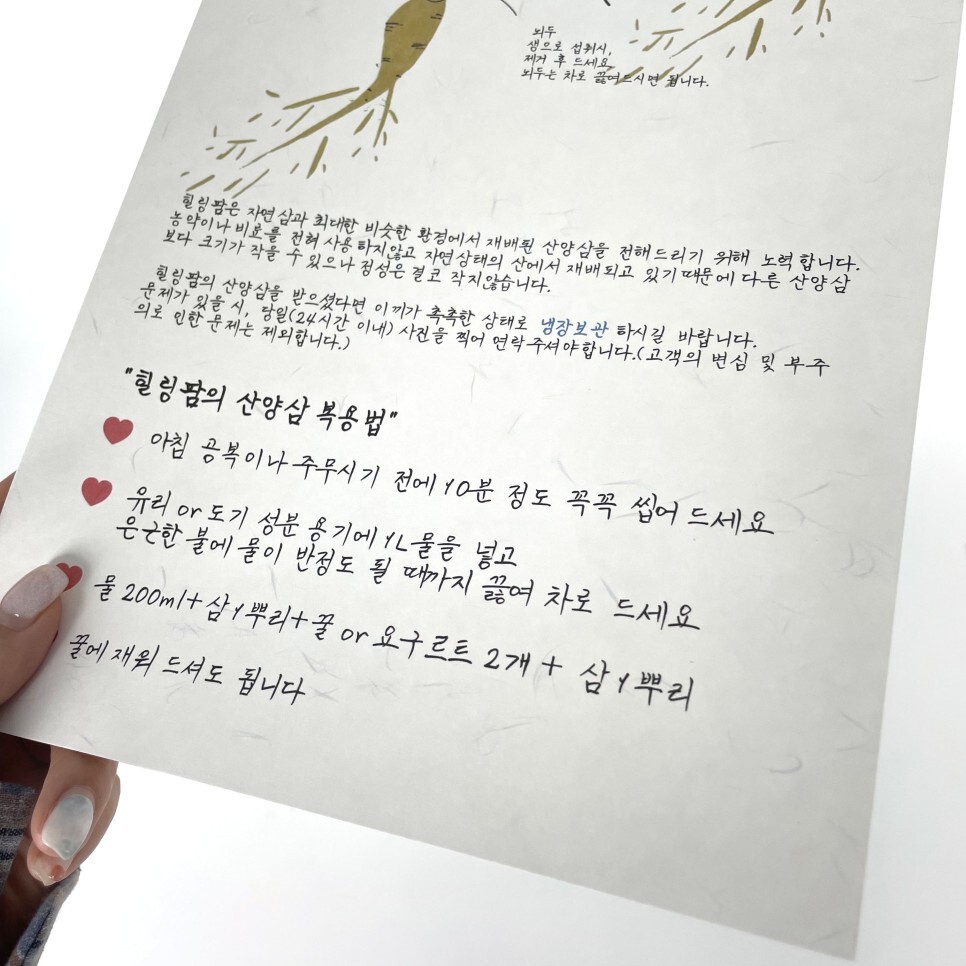 뇌두
생으로 섭취시,
제거 후 드세요
뇌두는 차로 끓여드시면 됩니다.
힐링팜은 자연삼과 최대한 비슷한 환경에서 재배된 산양삼을 전해드리기 위해 노력합니다.
농약이나 비료를 전혀 사용하지않고 자연상태의 산에서 재배되고 있기 때문에 다른 산양삼
보다 크기가 작을 수 있으나 정성은 결코 작지않습니다.
힐링팜의 산양삼을 받으셨다면 이끼가 촉촉한 상태로 냉장보관 하시길 바랍니다.
문제가 있을 시, 당일(24시간 이내) 사진을 찍어 연락주셔야합니다.(고객의 변심 및 부주
의로 인한 문제는 제외합니다.)
"힐링팜의 산양삼 복용법"
아침 공복이나 주무시기 전에 10분 정도 꼭꼭 씹어 드세요
유리 or 도기 성분 용기에 1L 물을 넣고
은근한 불에 물이 반정도 될 때까지 끓여 차로 드세요
물 200ml + 삼 1뿌리 + 꿀 or 요구르트 2개 + 삼 1뿌리
꿀에 재워 드셔도 됩니다